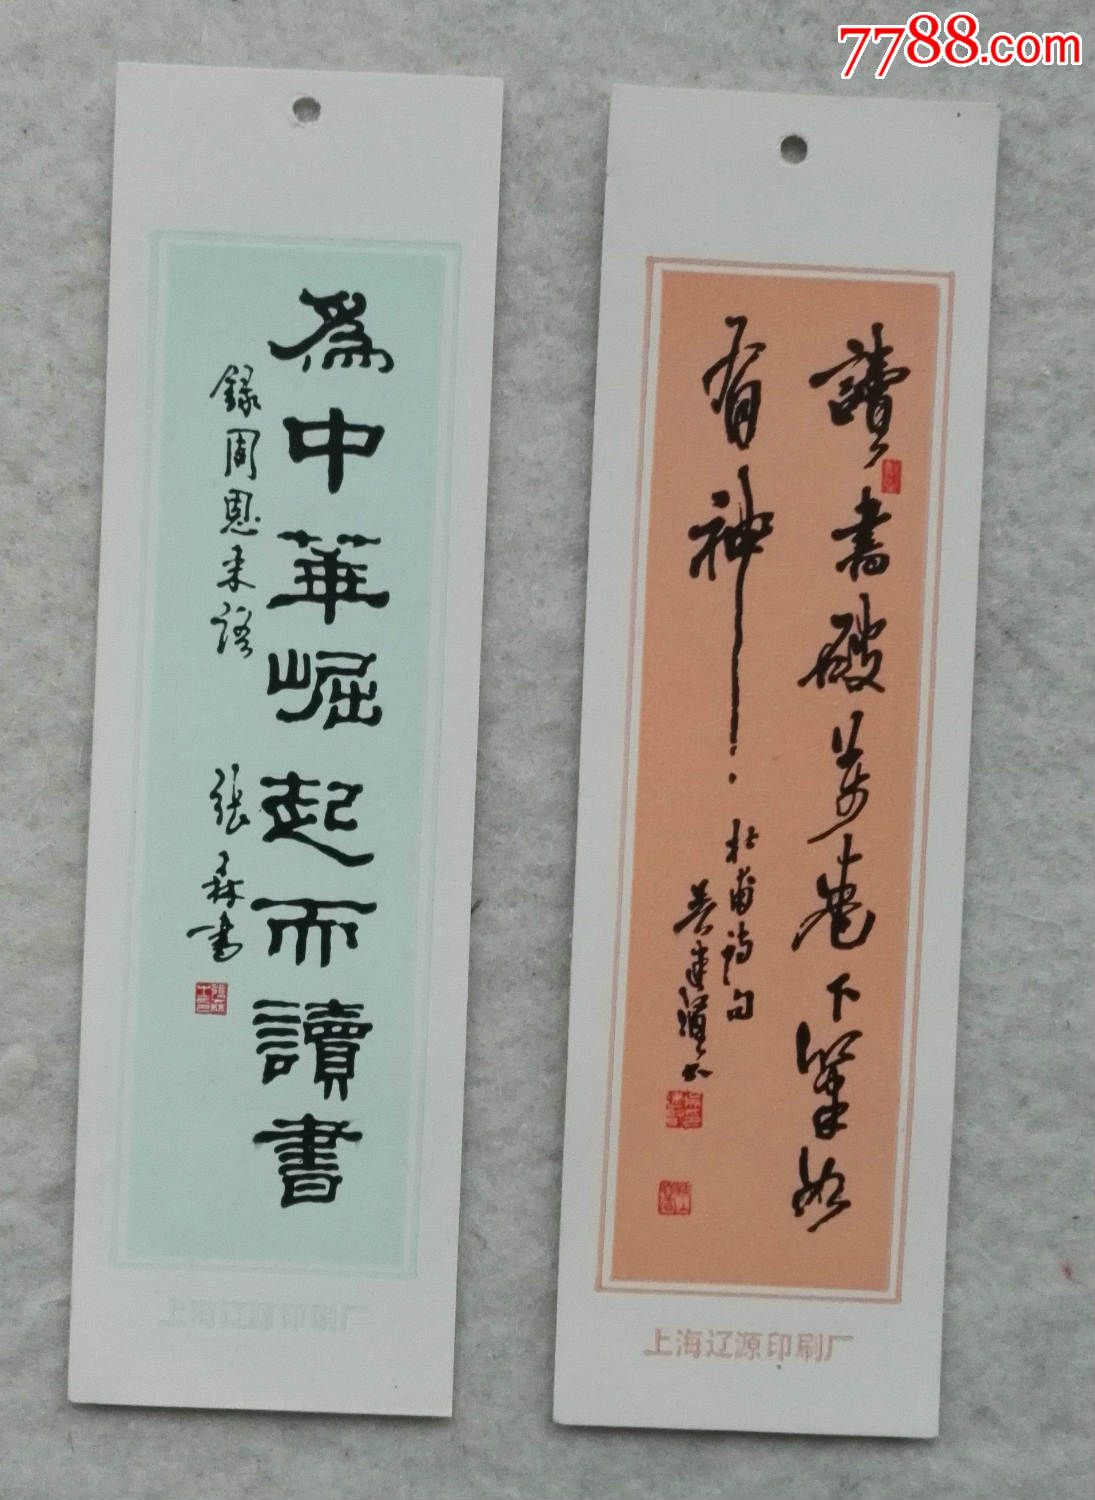 7788.com
為中華崛起而讀書
録周恩来語
張森書
上海辽源印刷厂
讀書破萬卷下筆如
有神
杜甫詩句
上海辽源印刷厂